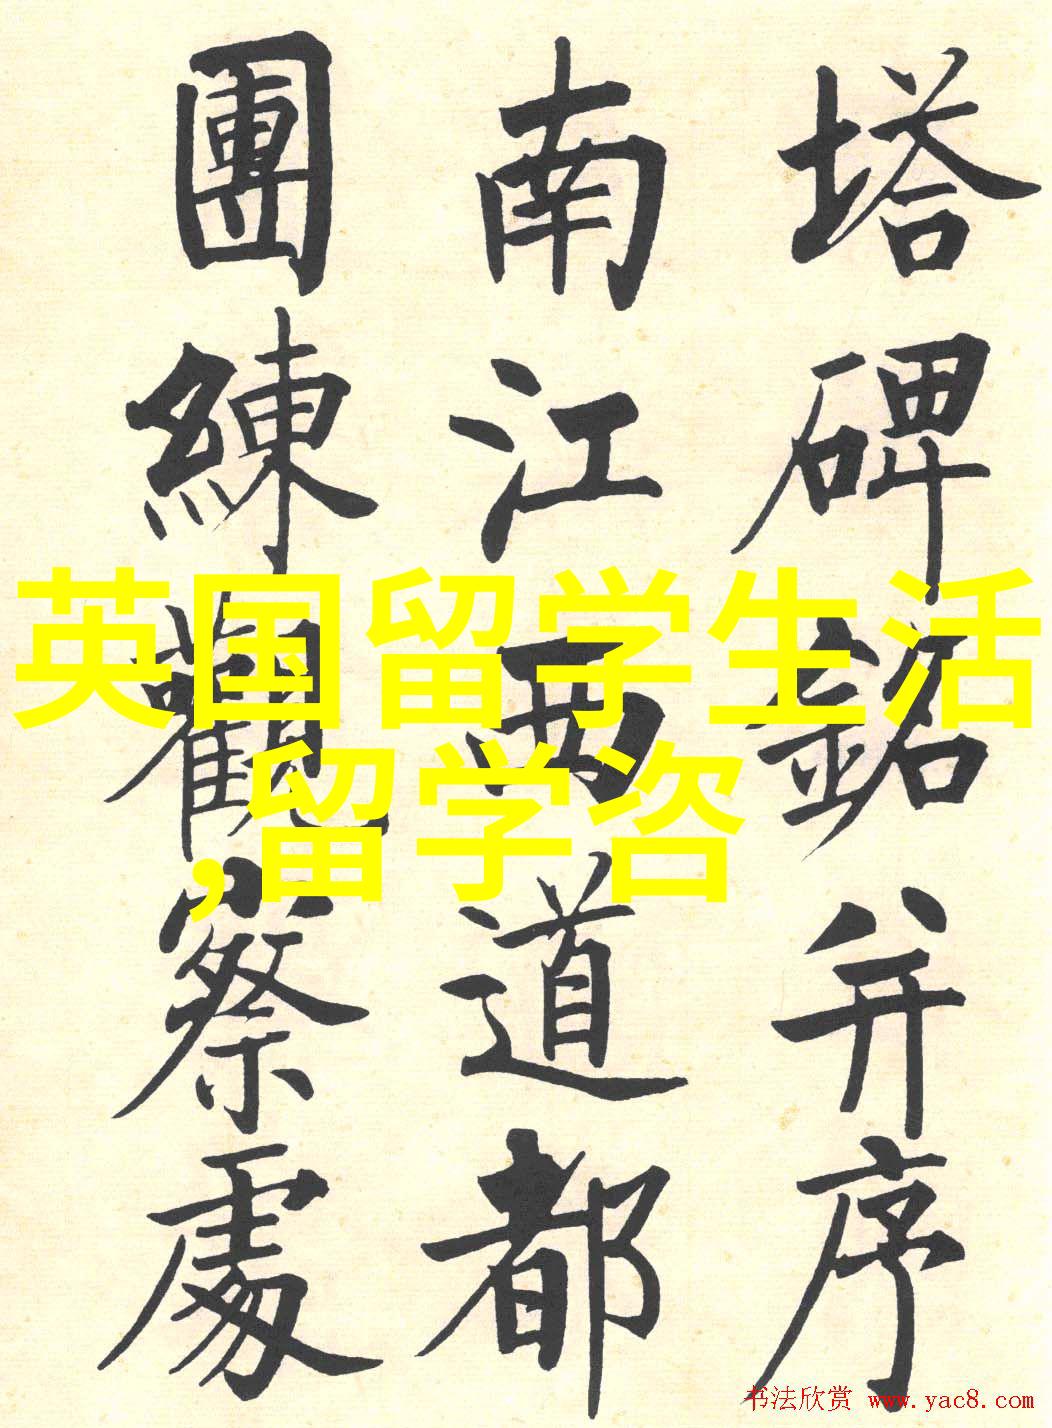 塔碑銘并序
南江西道都
團練觀察處
英国留学生活
,留学咨
书法欣赏 www.yac8.com